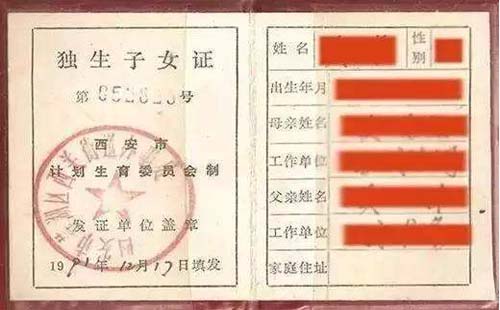 独生子女证
第 号
西安市
计划生育委员会制
发证单位盖章
1981年12月17日填发
姓名
性别
出生年月
母亲姓名
工作单位
父亲姓名
工作单位
家庭住址